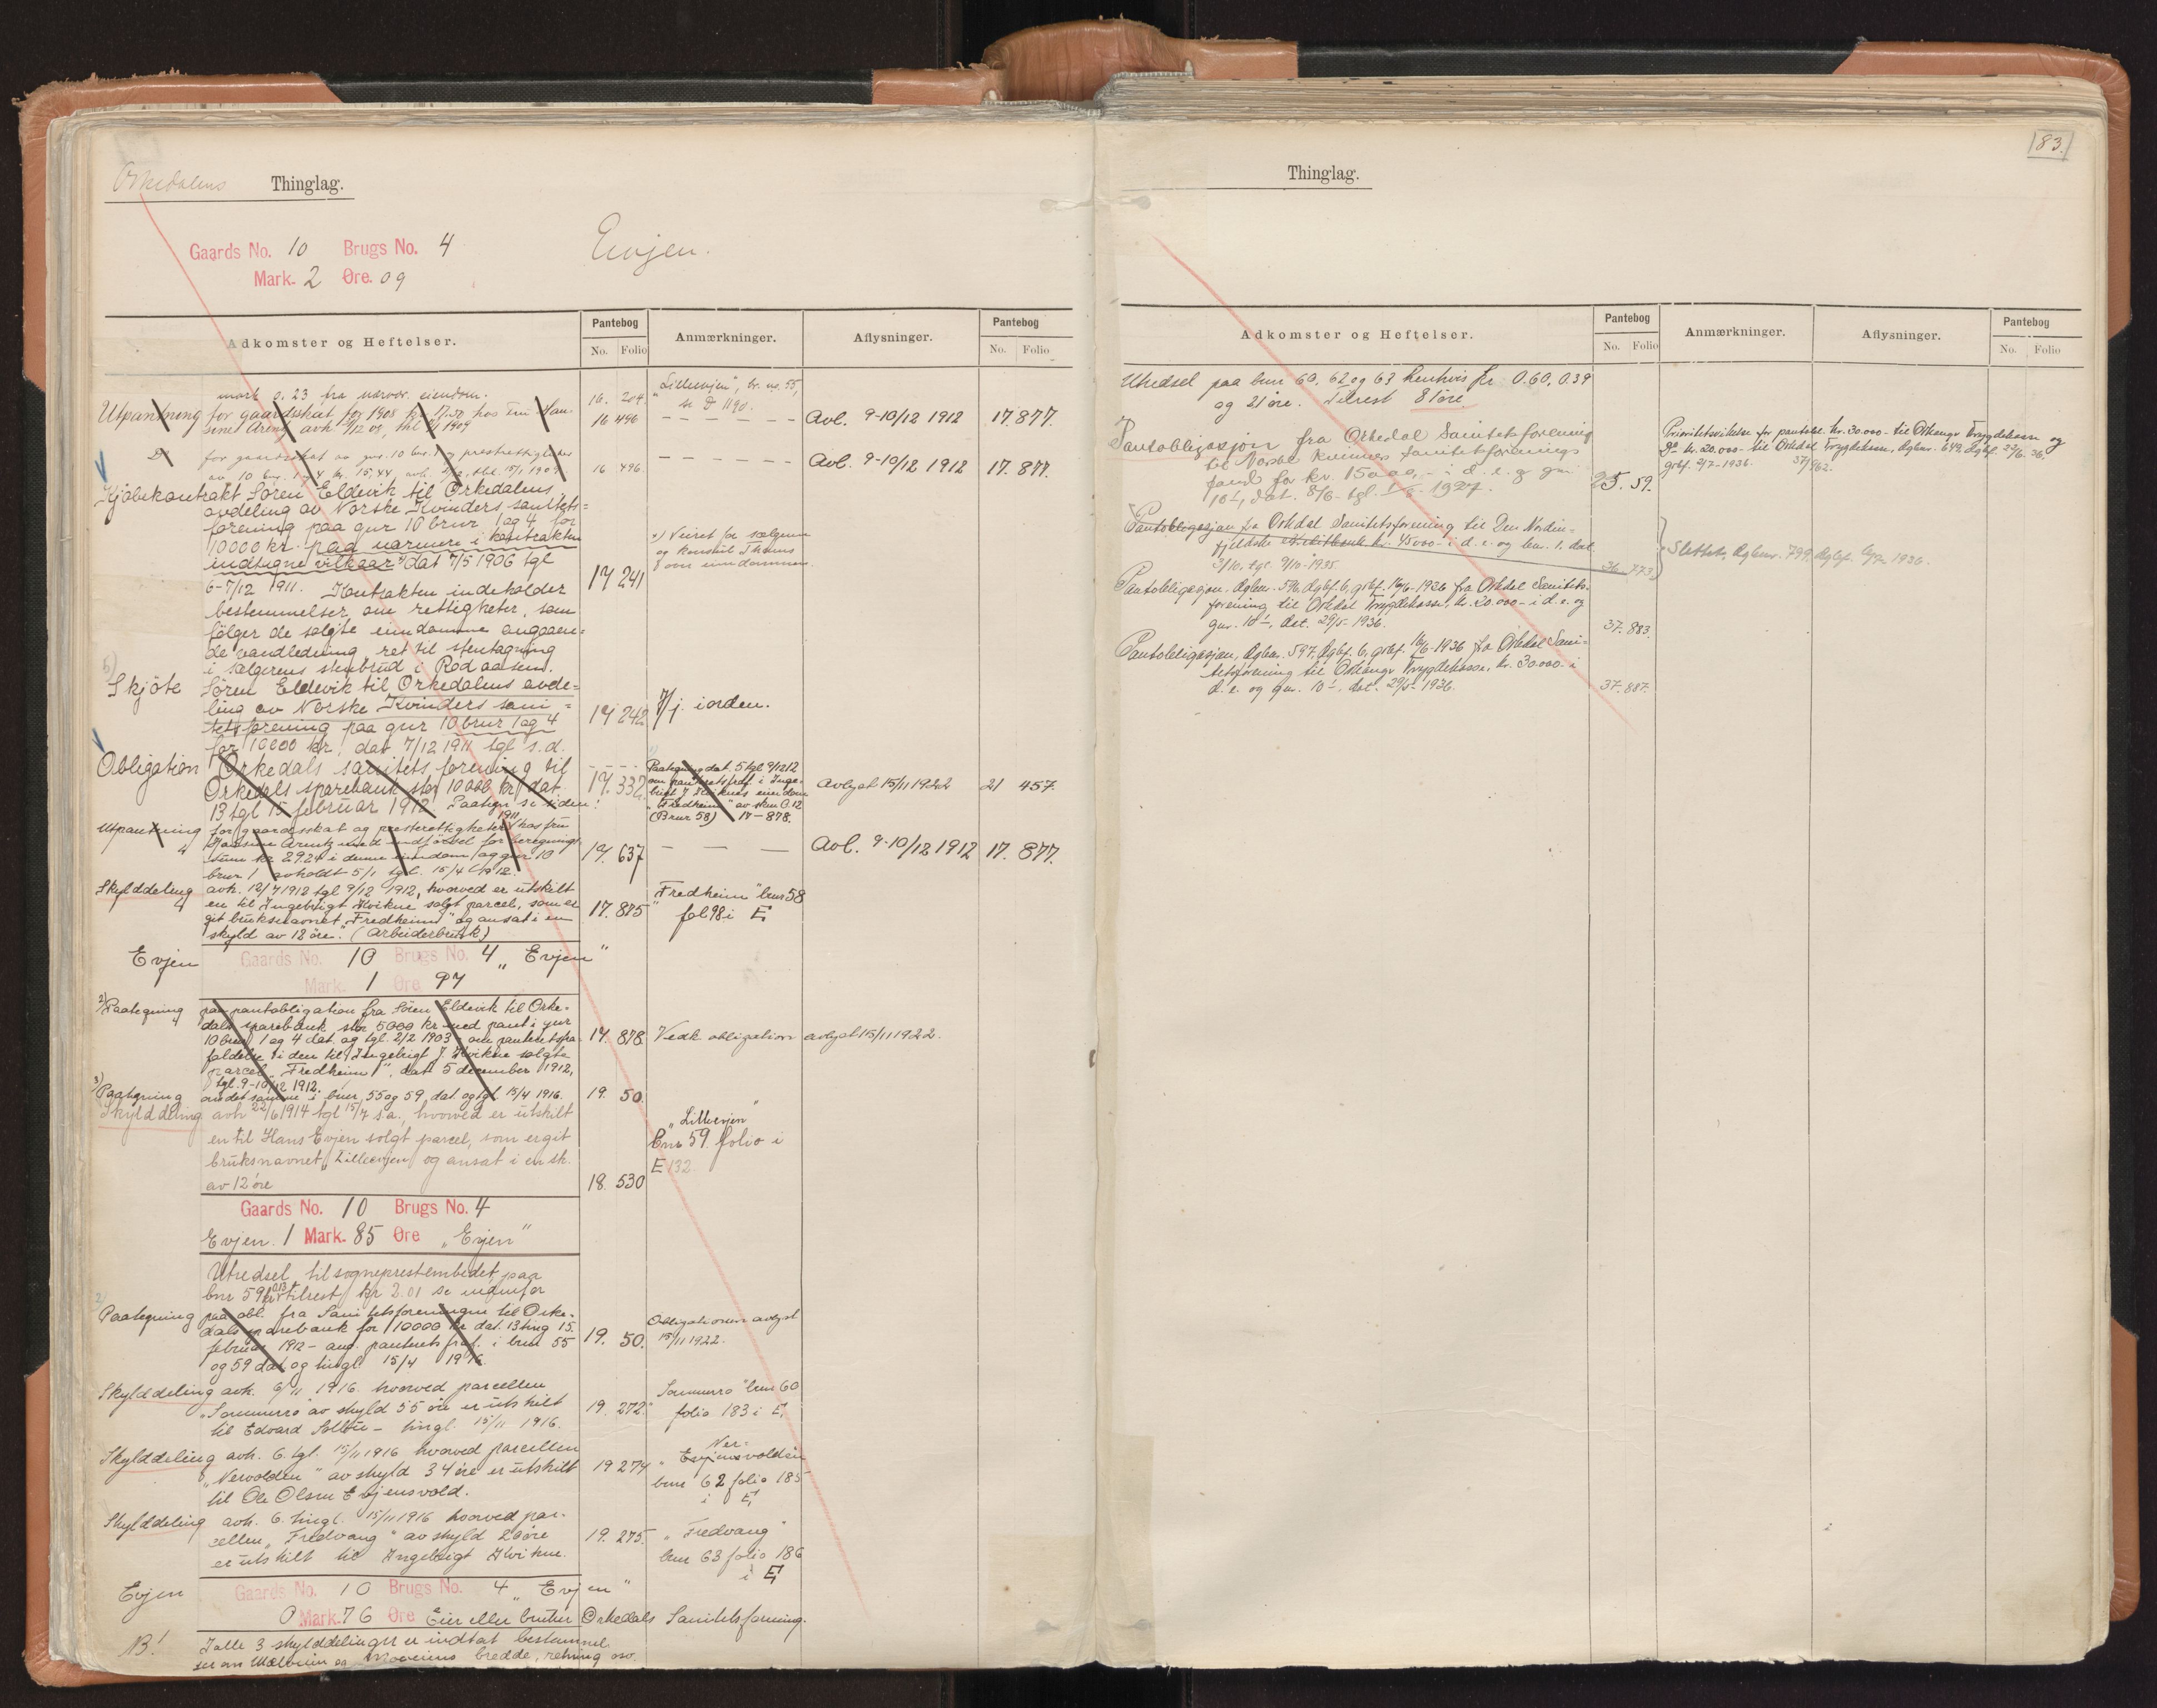 Orkedalens Thinglag.
Gaards No. 10 Brugs No. 4
Mark. 2 Øre. 09
Evjen.
Adkomster og Heftelser.
Pantebog
No. Folio
Anmærkninger.
Aflysninger.
Pantebog
No. Folio
mark 0.23 fra nærvær. eiendom. 16. 204. "Lilleevjen", br. no. 55,
Utpantning for gaardsskat for 1908 kr. 17.50 hos fru Han- 16 496 Avl. 9-10/12 1912 17. 877.
sine Arentz avh.
Do for gaardsskat av gnr. 10 bnr. 1 og presterettigheter
av 10 bnr. 1 og 4 kr. 15,44 16 496. Avl. 9-10/12 1912 17. 877.
Kjøbekontrakt Søren Eldevik til Orkedalens
avdeling av Norske Kvinders sanitets=
forening paa gnr 10 brnr 1 og 4 for
10000 kr. paa nærmere i kontrakten
indtagne vilkaar dat 7/5 1906 tgl
6-7/12 1911. Kontrakten indeholder 17 241
x) Veiret for sælgeren
og konsul Thams
over eiendommen.
bestemmelser om rettigheter, som
følger de solgte eiendomme angaaen=
de vandledning, ret til stentagning
i sælgerens stenbrud i Rødaasen.
Skjøte Søren Eldevik til Orkedalens avde=
ling av Norske Kvinders sani=
tetsforening paa gnr 10 brnr 1 og 4 17 242 H/j. i orden.
for 10000 kr. dat 7/12 1911 tgl s.d.
Obligation Orkedals sanitets forening til
Orkedals sparebank stor 10000 kr dat 17. 332
13 tgl 15 februar 1912. Paategn se siden!
Paategning dat. 5 tgl 9/12 12
om panteretsfraf. i Inge-
brigt J Kviknes eiendom
"Fredheim" av skm 0.12
(Brnr 58) 17-878.
Avlyst 15/11 1922 21 457.
Utpantning for gaardsskat og presterettigheter 1911 hos fru
Hansine Arentz med indførsel for beregnings-
sum kr 29.24 i denne eiendom og gnr 10 17. 637 Avl. 9-10/12 1912 17. 877.
brnr 1 avholdt 5/1 tgl. 15/4 1912.
Skylddeling avh. 12/7 1912 tgl 9/12 1912, hvorved er utskilt
en til Ingebrigt Kvikne solgt parcel, som er 17. 875
git bruksnavnet "Fredheim" og ansat i en
skyld av 12 øre. (Arbeiderbruk)
"Fredheim" bnr 58
fol 98 i E
Evjen Gaards No. 10 Brugs No. 4 "Evjen"
Mark. 1 Øre 97
2) Paategning paa pantobligation fra Søren Eldevik til Orke-
dals sparebank stor 5000 kr med pant i gnr
10 bnr 1 og 4 dat. og tgl. 2/2 1903 om panteretsfra- 17. 878. Vedk obligation avlyst 15/11 1922.
faldelse i den til Ingebrigt J. Kvikne solgte
parcel "Fredheim", dat 5 december 1912,
tgl. 9-10/12 1912.
3) Paategning om det samme i bnr, 55 og 59, dat. og tgl. 15/4 1916. 19. 50.
Skylddeling avh 22/6 1914 tgl 15/7 s.a., hvorved er utskilt
en til Hans Evjen solgt parcel, som er git
bruksnavnet "Lilleevjen" og ansat i en sk.
av 12 øre 18. 530
"Lilleevjen"
bnr 59. folio i
E 132.
Gaards No. 10 Brugs No. 4
Evjen. 1 Mark. 85 Øre "Evjen"
Utredsel til sogneprestembedet paa
bnr 59 kr 0.13 tilrest kr 2.01 se indenfor
Paategning paa obl. fra Sanitetsforeningen til Orke-
dals sparebank for 10000 kr dat. 13 ting 15. 19. 50.
februar 1912 - ang. panterets fraf. i bnr 55
og 59 dat og tingl. 15/4 1916.
Obligationen avlyst
15/11 1922.
Skylddeling avh. 6/11 1916. hvorved parcellen
"Sommerro" av skyld 55 øre er utskilt 19. 272.
til Edvard Solbu - tingl. 15/11 1916.
"Sommerro" bnr 60
folio 183 i E
Skylddeling avh. 6. tgl. 15/11 1916 hvorved parcellen
"Nervolden" av skyld 34 øre er utskilt 19 274
til Ole Olsen Evjensvold.
Ner-
"Evjensvolden
bnr 62 folio 185
i E
Skylddeling avh. 6. tingl. 15/11 1916 hvorved par-
cellen "Fredvang" av skyld 20 øre 19. 275.
er utskilt til Ingebrigt Kvikne.
"Fredvang"
bnr 63 folio 186
i E
Evjen Gaards No. 10 Brugs No. 4 "Evjen"
0 Mark. 76 Øre Eier eller bruker Orkedals Sanitetsforening.
NB! I alle 3 skylddelinger er indtat bestemmel-
ser om bredde, retning osv.
83.
Thinglag.
Adkomster og Heftelser.
Pantebog
No. Folio
Anmærkninger.
Aflysninger.
Pantebog
No. Folio
Utredsel paa bnr 60, 62 og 63 henhvis kr. 0.60, 0.39
og 21 øre. tilrest 81 øre.
Pantobligasjon fra Orkedal Sanitetsforening
til Norske kvinners sanitetsforenings
fond for kr. 15000,- i d. e. og gnr
10/1, dat. 8/6 - tgl. 1927. 25. 59.
Prioritetsvikelse for pantobl. kr. 30.000 til Orkanger Trygdekasse og
Do kr. 20.000 - til Orkdal Trygdekasse, dgbnr. 649, dgbf. 22/6-36,
grbf. 2/7-1936. 37/962.
Pantobligasjon fra Orkdal Sanitetsforening til Den Nordin=
fjeldske Kreditbank kr. 45000 - i d. e. og bnr. 1. dat.
3/10. tgl. 9/10-1935. 36 773
Slettet, dgbnr. 799, dgbf. 1936.
Pantobligasjon. dgbnr. 596, dgbf. 6, grbf. 16/6-1936 fra Orkdal Sanitets-
forening til Orkdal Trygdekasse, kr. 20.000 - i d. e. og
gnr. 10/1, dat. 29/5-1936. 37. 883.
Pantobligasjon, dgbnr. 597, dgbf. 6, grbf. 16/6-1936 fra Orkdal Sani=
tetsforening til Orkanger Trygdekasse, kr. 30.000 - i
d. e. og gnr. 10/1, dat. 29/5-1936. 37. 887.